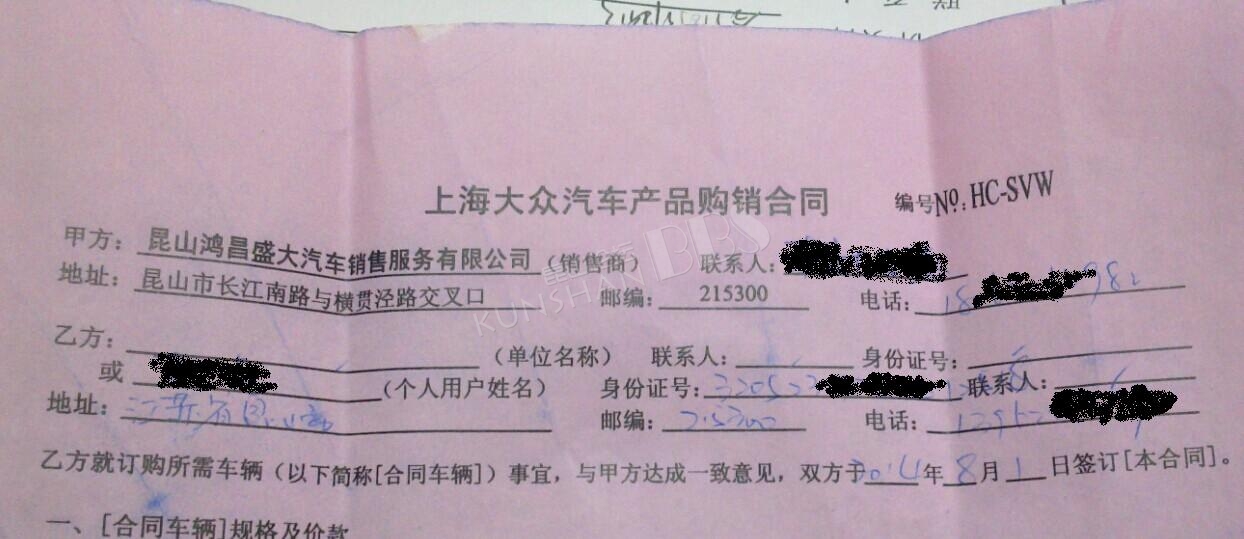 上海大众汽车产品购销合同 编号№: HC-SVW
甲方: 昆山鸿昌盛大汽车销售服务有限公司 (销售商) 联系人:
地址: 昆山市长江南路与横贯泾路交叉口 邮编: 215300 电话: 18 982
乙方: (单位名称) 联系人: 身份证号:
或 (个人用户姓名) 身份证号: 320522 联系人:
地址: 江苏省昆山 邮编: 215300 电话: 1395
乙方就订购所需车辆(以下简称[合同车辆])事宜,与甲方达成一致意见,双方于2014年8月1日签订[本合同]。
一、[合同车辆]规格及价款
KUNSHAN BBS